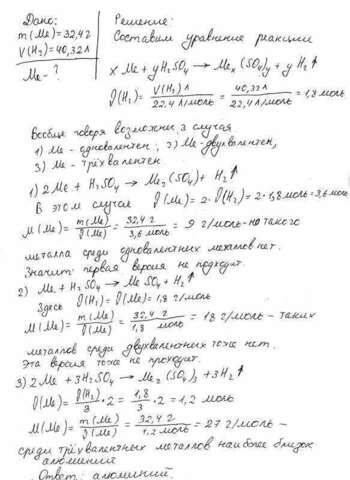 Дано:
m(Me)=32,4г
V(H₂)=40,32л
Me-?
Решение:
Составим уравнение реакции
xMe + yH₂SO₄ → Meₓ(SO₄)y + yH₂↑
ϑ(H₂) = V(H₂)л / 22,4 л/моль = 40,32л / 22,4 л/моль = 1,8 моль
Вообще говоря возможны 3 случая
1) Me - одновалентен; 2) Me - двухвалентен,
3) Me - трёхвалентен
1) 2Me + H₂SO₄ → Me₂(SO₄) + H₂↑
В этом случае ϑ(Me) = 2·ϑ(H₂) = 2·1,8моль = 3,6моль
M(Me) = m(Me) / ϑ(Me) = 32,4 г / 3,6 моль = 9 г/моль - но такого
металла среди одновалентных металлов нет.
Значит первая версия не подходит.
2) Me + H₂SO₄ → MeSO₄ + H₂↑
Здесь ϑ(H₂) = ϑ(Me) = 1,8 моль
M(Me) = m(Me) / ϑ(Me) = 32,4 г / 1,8 моль = 18 г/моль - таких
металлов среди двухвалентных тоже нет.
Эта версия тоже не проходит.
3) 2Me + 3H₂SO₄ → Me₂(SO₄)₃ + 3H₂↑
ϑ(Me) = ϑ(H₂) / 3 · 2 = 1,8 / 3 · 2 = 1,2 моль
M(Me) = m(Me) / ϑ(Me) = 32,4 г / 1,2 моль = 27 г/моль -
среди трёхвалентных металлов наиболее близок
алюминий
Ответ: алюминий.